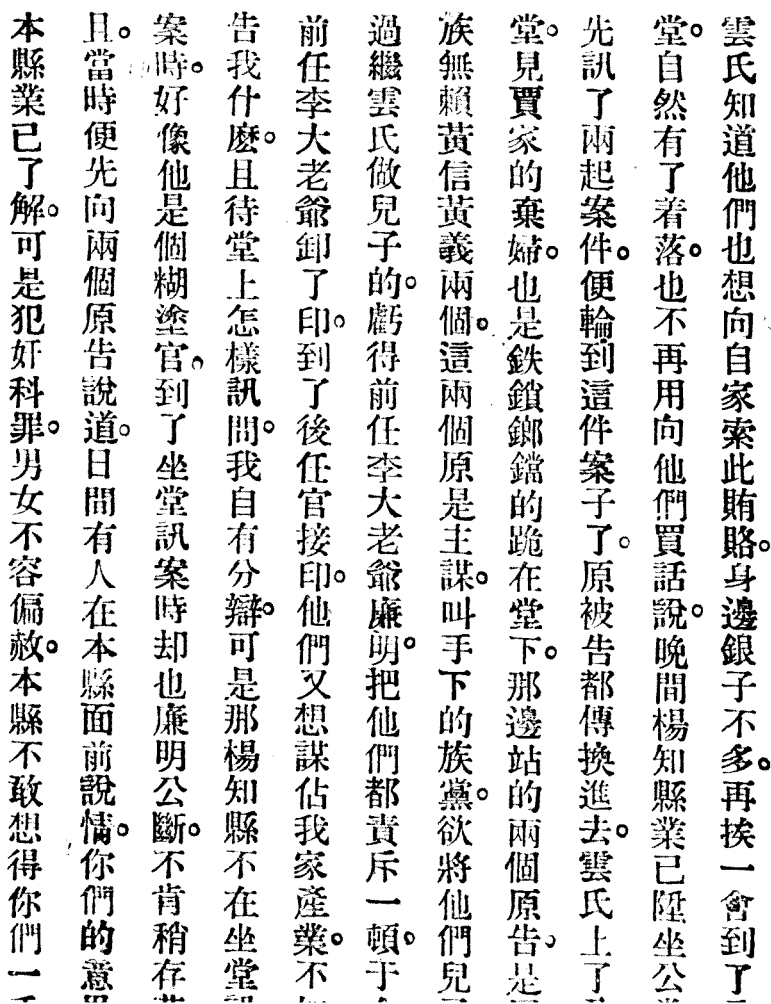 雲氏知道他們也想向自家索此賄賂。身邊銀子不多。再挨一會到了
堂。自然有了着落。也不再用向他們買話說。晚間楊知縣業已陞坐公
先訊了兩起案件。便輪到這件案子了。原被告都傳換進去。雲氏上了
堂。見賈家的棄婦。也是鉄鎖鎯鐺的跪在堂下。那邊站的兩個原告。是
族無賴黃信黃義兩個。這兩個原是主謀。叫手下的族黨。欲將他們兒
過繼雲氏做兒子的。虧得前任李大老爺廉明。把他們都責斥一頓。于
前任李大老爺卸了印。到了後任官接印。他們又想謀佔我家產業。不
告我什麽。且待堂上怎樣訊問。我自有分辯。可是那楊知縣不在坐堂
案時。好像他是個糊塗官。到了坐堂訊案時却也廉明公斷。不肯稍存
且。當時便先向兩個原告說道。日間有人在本縣面前說情。你們的意
本縣業已了解。可是犯奸科罪。男女不容偏赦。本縣不敢想得你們一